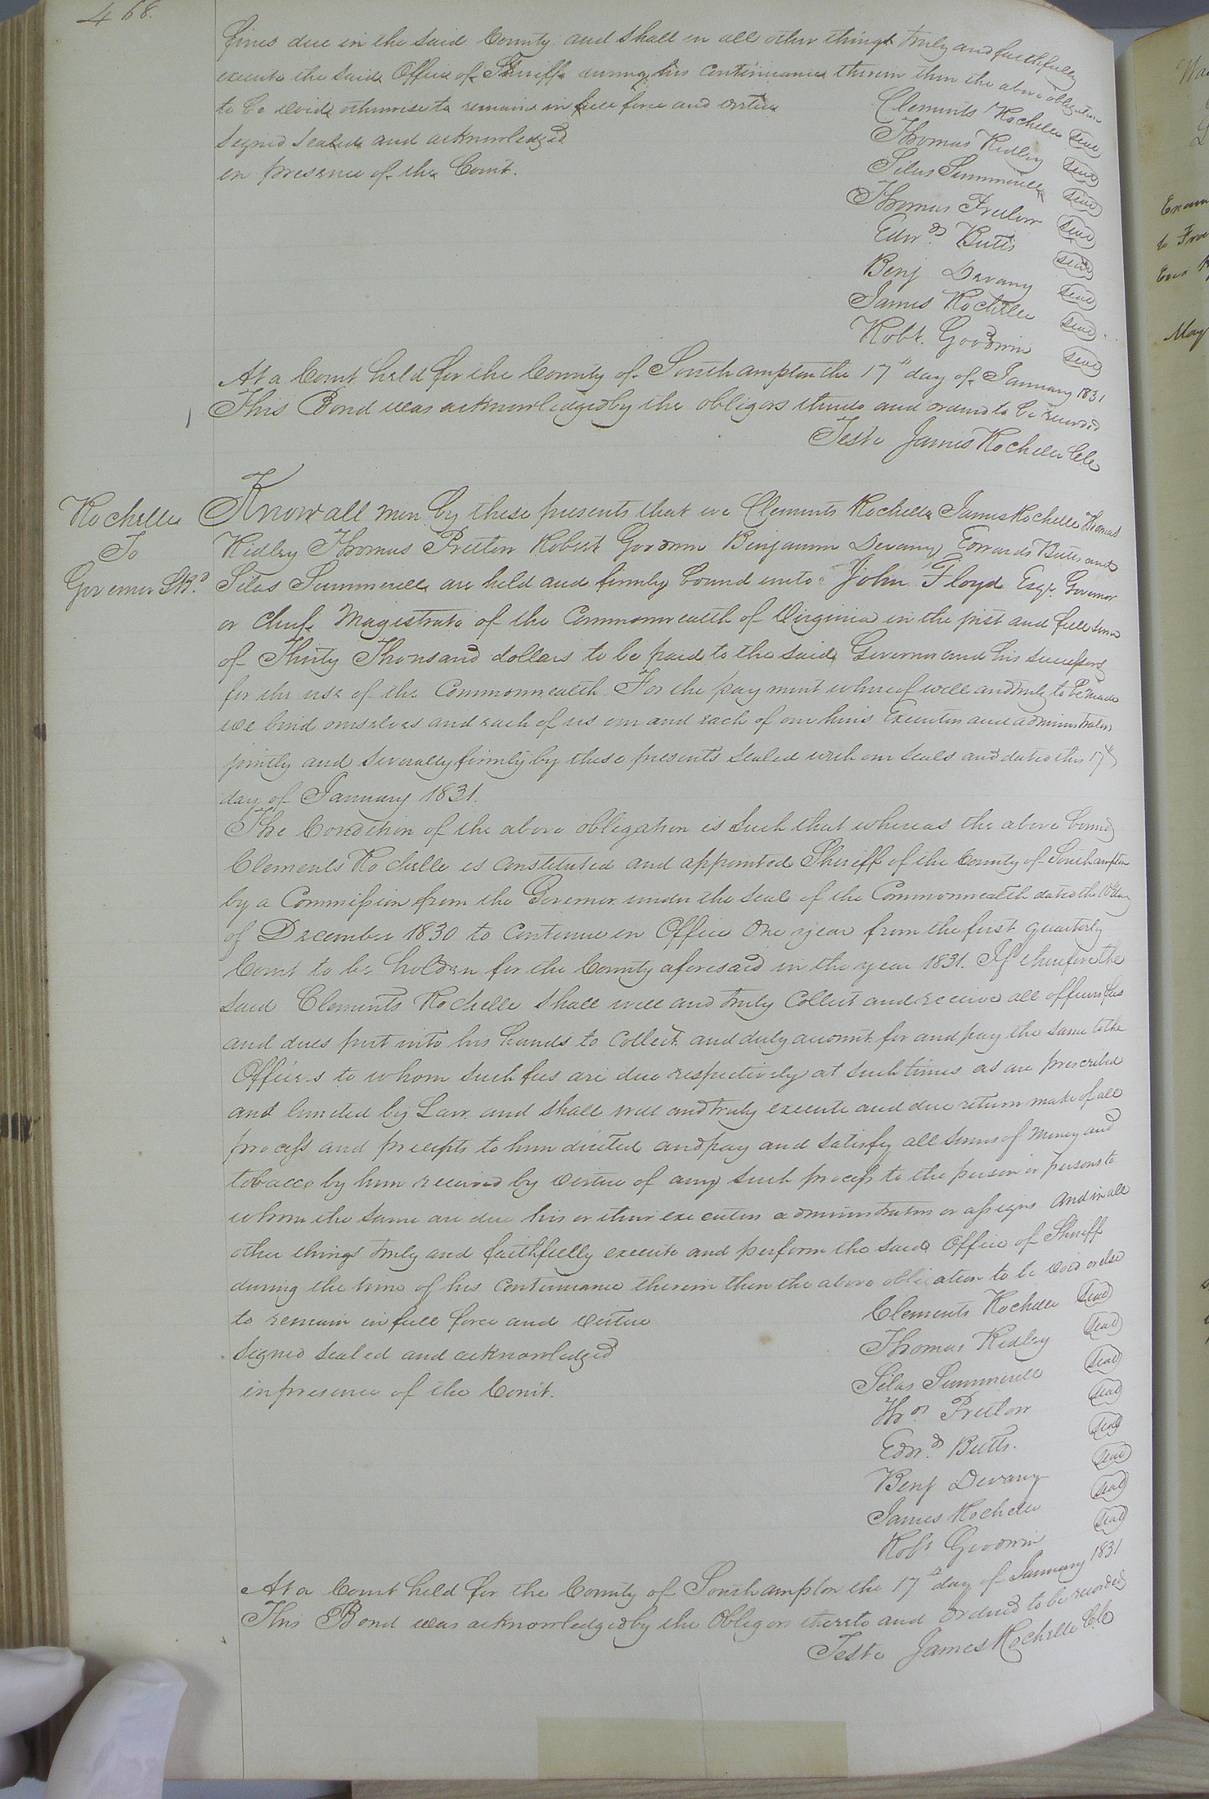 468.
fines due in the said County and shall in all other things truly and faithfully
execute the said Office of Sheriff during his continuance therein then the above obligation
to be void otherwise to remain in full force and virtue
Signed Sealed and acknowledged
in presence of the Court.
Clements Rochelle Seal
Thomas Ridley Seal
Silas Summerell Seal
Thomas Pretlow Seal
Edwd. Butts Seal
Benj Devany Seal
James Rochelle Seal
Robt. Goodwin Seal
At a Court held for the County of Southampton the 17th day of January 1831
This Bond was acknowledged by the obligors thereto and ordered to be recorded
Teste James Rochelle Clk
Rochelle
To
Governor &c Bd.
Know all men by these presents that we Clements Rochelle James Rochelle Thomas
Ridley Thomas Pretlow Robert Goodwin Benjamin Devany Edwards Butts and
Silas Summerell are held and firmly bound unto John Floyd Esqr. Governor
or Chief Magistrate of the Commonwealth of Virginia in the just and full sum
of Thirty Thousand dollars to be paid to the said Governor and his successors
for the use of the Commonwealth For the payment whereof well and truly to be made
we bind ourselves and each of us our and each of our heirs Executors and administrators
jointly and severally firmly by these presents Sealed with our Seals and dated this 17th
day of January 1831.
The Condition of the above obligation is Such that whereas the above bound
Clements Rochelle is constituted and appointed Sheriff of the County of Southampton
by a Commission from the Governor under the Seal of the Commonwealth dated the day
of December 1830 to continue in Office One year from the first quarterly
Court to be holden for the County aforesaid in the year 1831. If therefore the
Said Clements Rochelle Shall well and truly Collect and receive all officers fees
and dues put into his hands to Collect and duly account for and pay the same to the
Officers to whom such fees are due respectively at such times as are prescribed
and limited by Law and shall well and truly execute and due return make of all
process and precepts to him directed and pay and satisfy all sums of Money and
tobacco by him received by virtue of any such process to the person or persons to
whom the same are due his or their executors administrators or assigns And in all
other things truly and faithfully execute and perform the said Office of Sheriff
during the time of his continuance therein then the above obligation to be void or else
to remain in full force and virtue
Signed Sealed and acknowledged
in presence of the Court.
Clements Rochelle Seal
Thomas Ridley Seal
Silas Summerell Seal
Thos Pretlow Seal
Edwd. Butts. Seal
Benj Devany Seal
James Rochelle Seal
Robt Goodwin Seal
At a Court held for the County of Southampton the 17th day of January 1831
This Bond was acknowledged by the Obligors thereto and Ordered to be recorded
Teste James Rochelle Clk
May